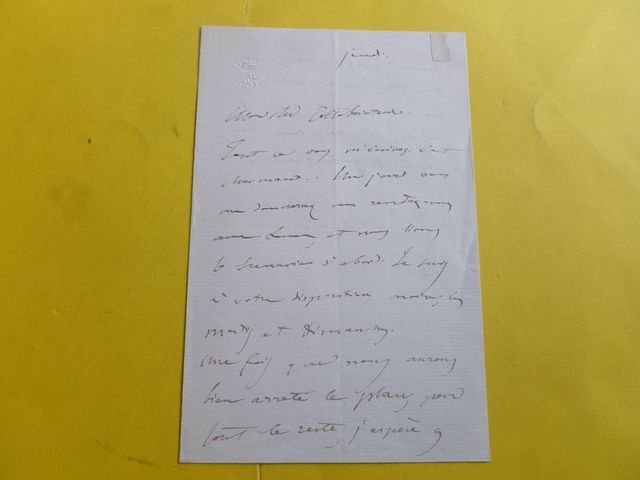 jeudi.
Mon cher Collaborateur.
Tout ce que vous m'écrivez, c'est
charmant. Un jour vous
me donnerez un rendez-vous
avec et nous lirons
le scenario d'abord. Je suis
à votre disposition, moins les
mardis et Dimanches.
Une fois que nous aurons
bien arrêté le plan, pour
tout le reste, j'espère q